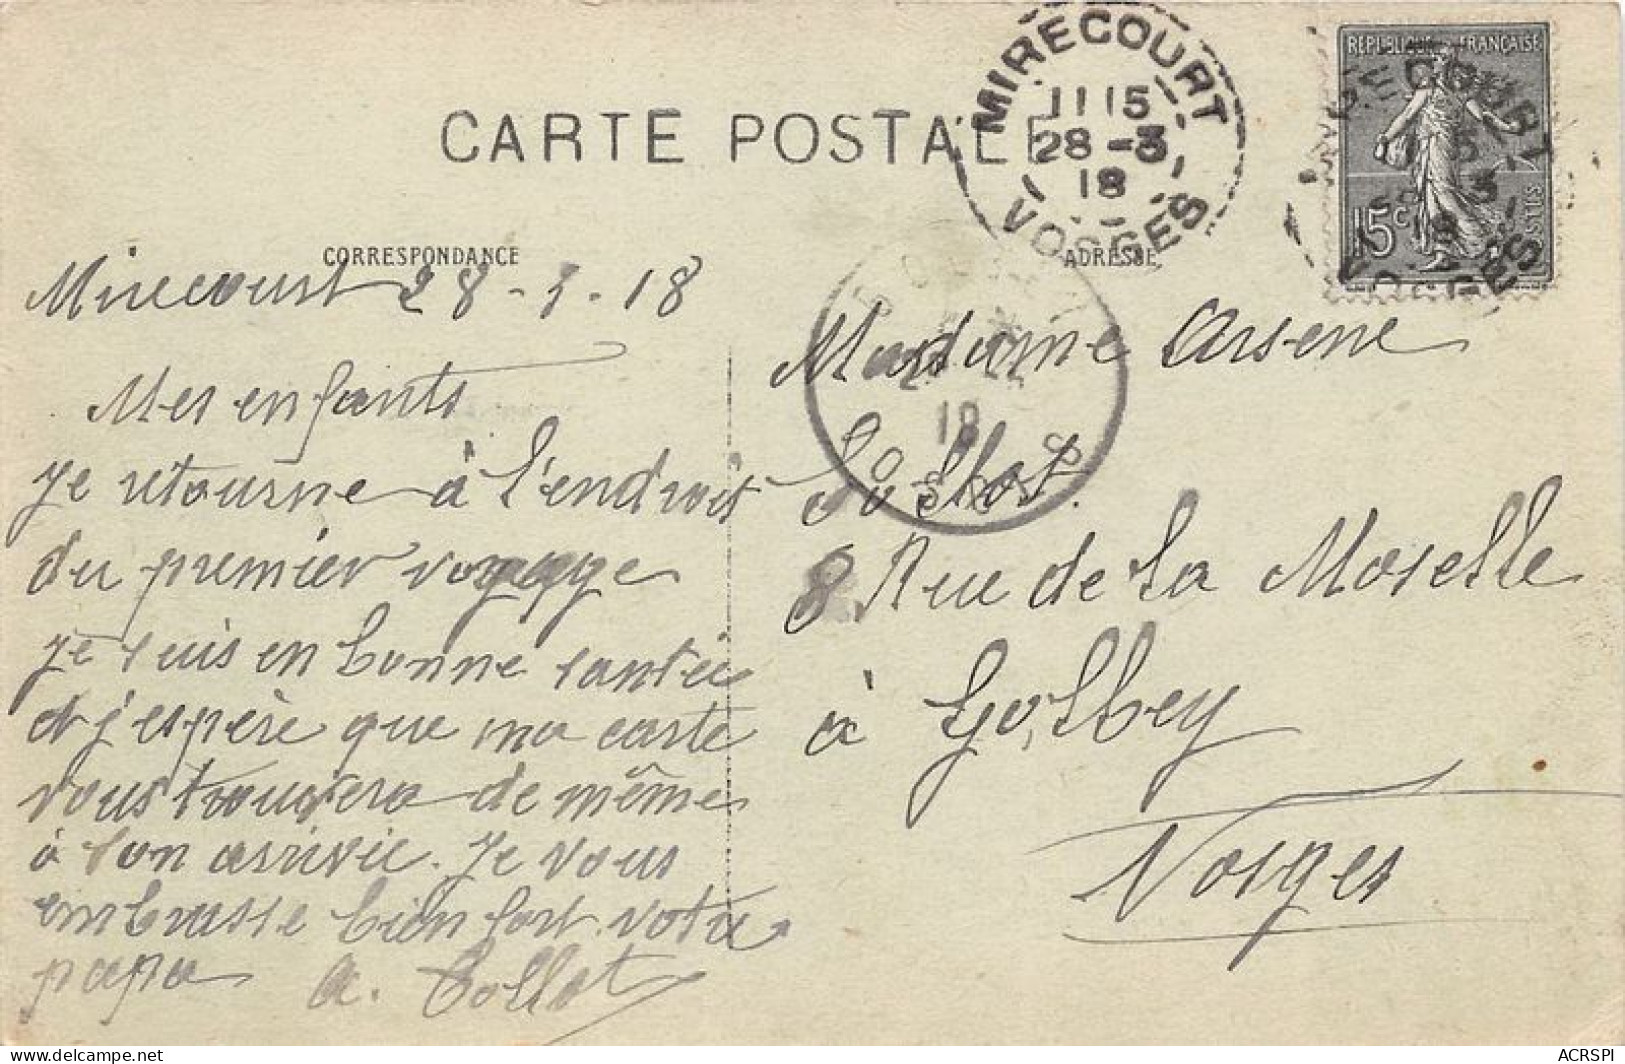 CARTE POSTALE
MIRECOURT
11 15
28 -3
18
VOSGES
REPUBLIQUE FRANÇAISE
15c
POSTES
CORRESPONDANCE
ADRESSE
Mirecourt 28-3-18
Mes enfants
je retourne à l'endroit
du premier voyage
je suis en bonne santée
et j'espère que ma carte
vous trouvera de même
à son arrivée. Je vous
embrasse bien fort votre
papa A. Collot
Madame Arsene
Collot.
8 Rue de la Moselle
à Golbey
Vosges
18
ACRSPI